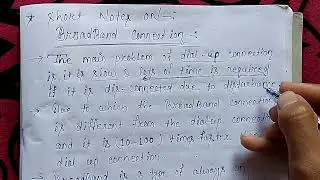 * Short Notes on :-
BroadBand Connection :-
→ The main problem of dial-up connection
is it is slow & lots of time is required
if it is dis-connected due to disturbance
→ Due to which the broadband connection
is different from the dialup connection
and it is (10-100) times faster
dial up connection
→ Broadband is a type of always on